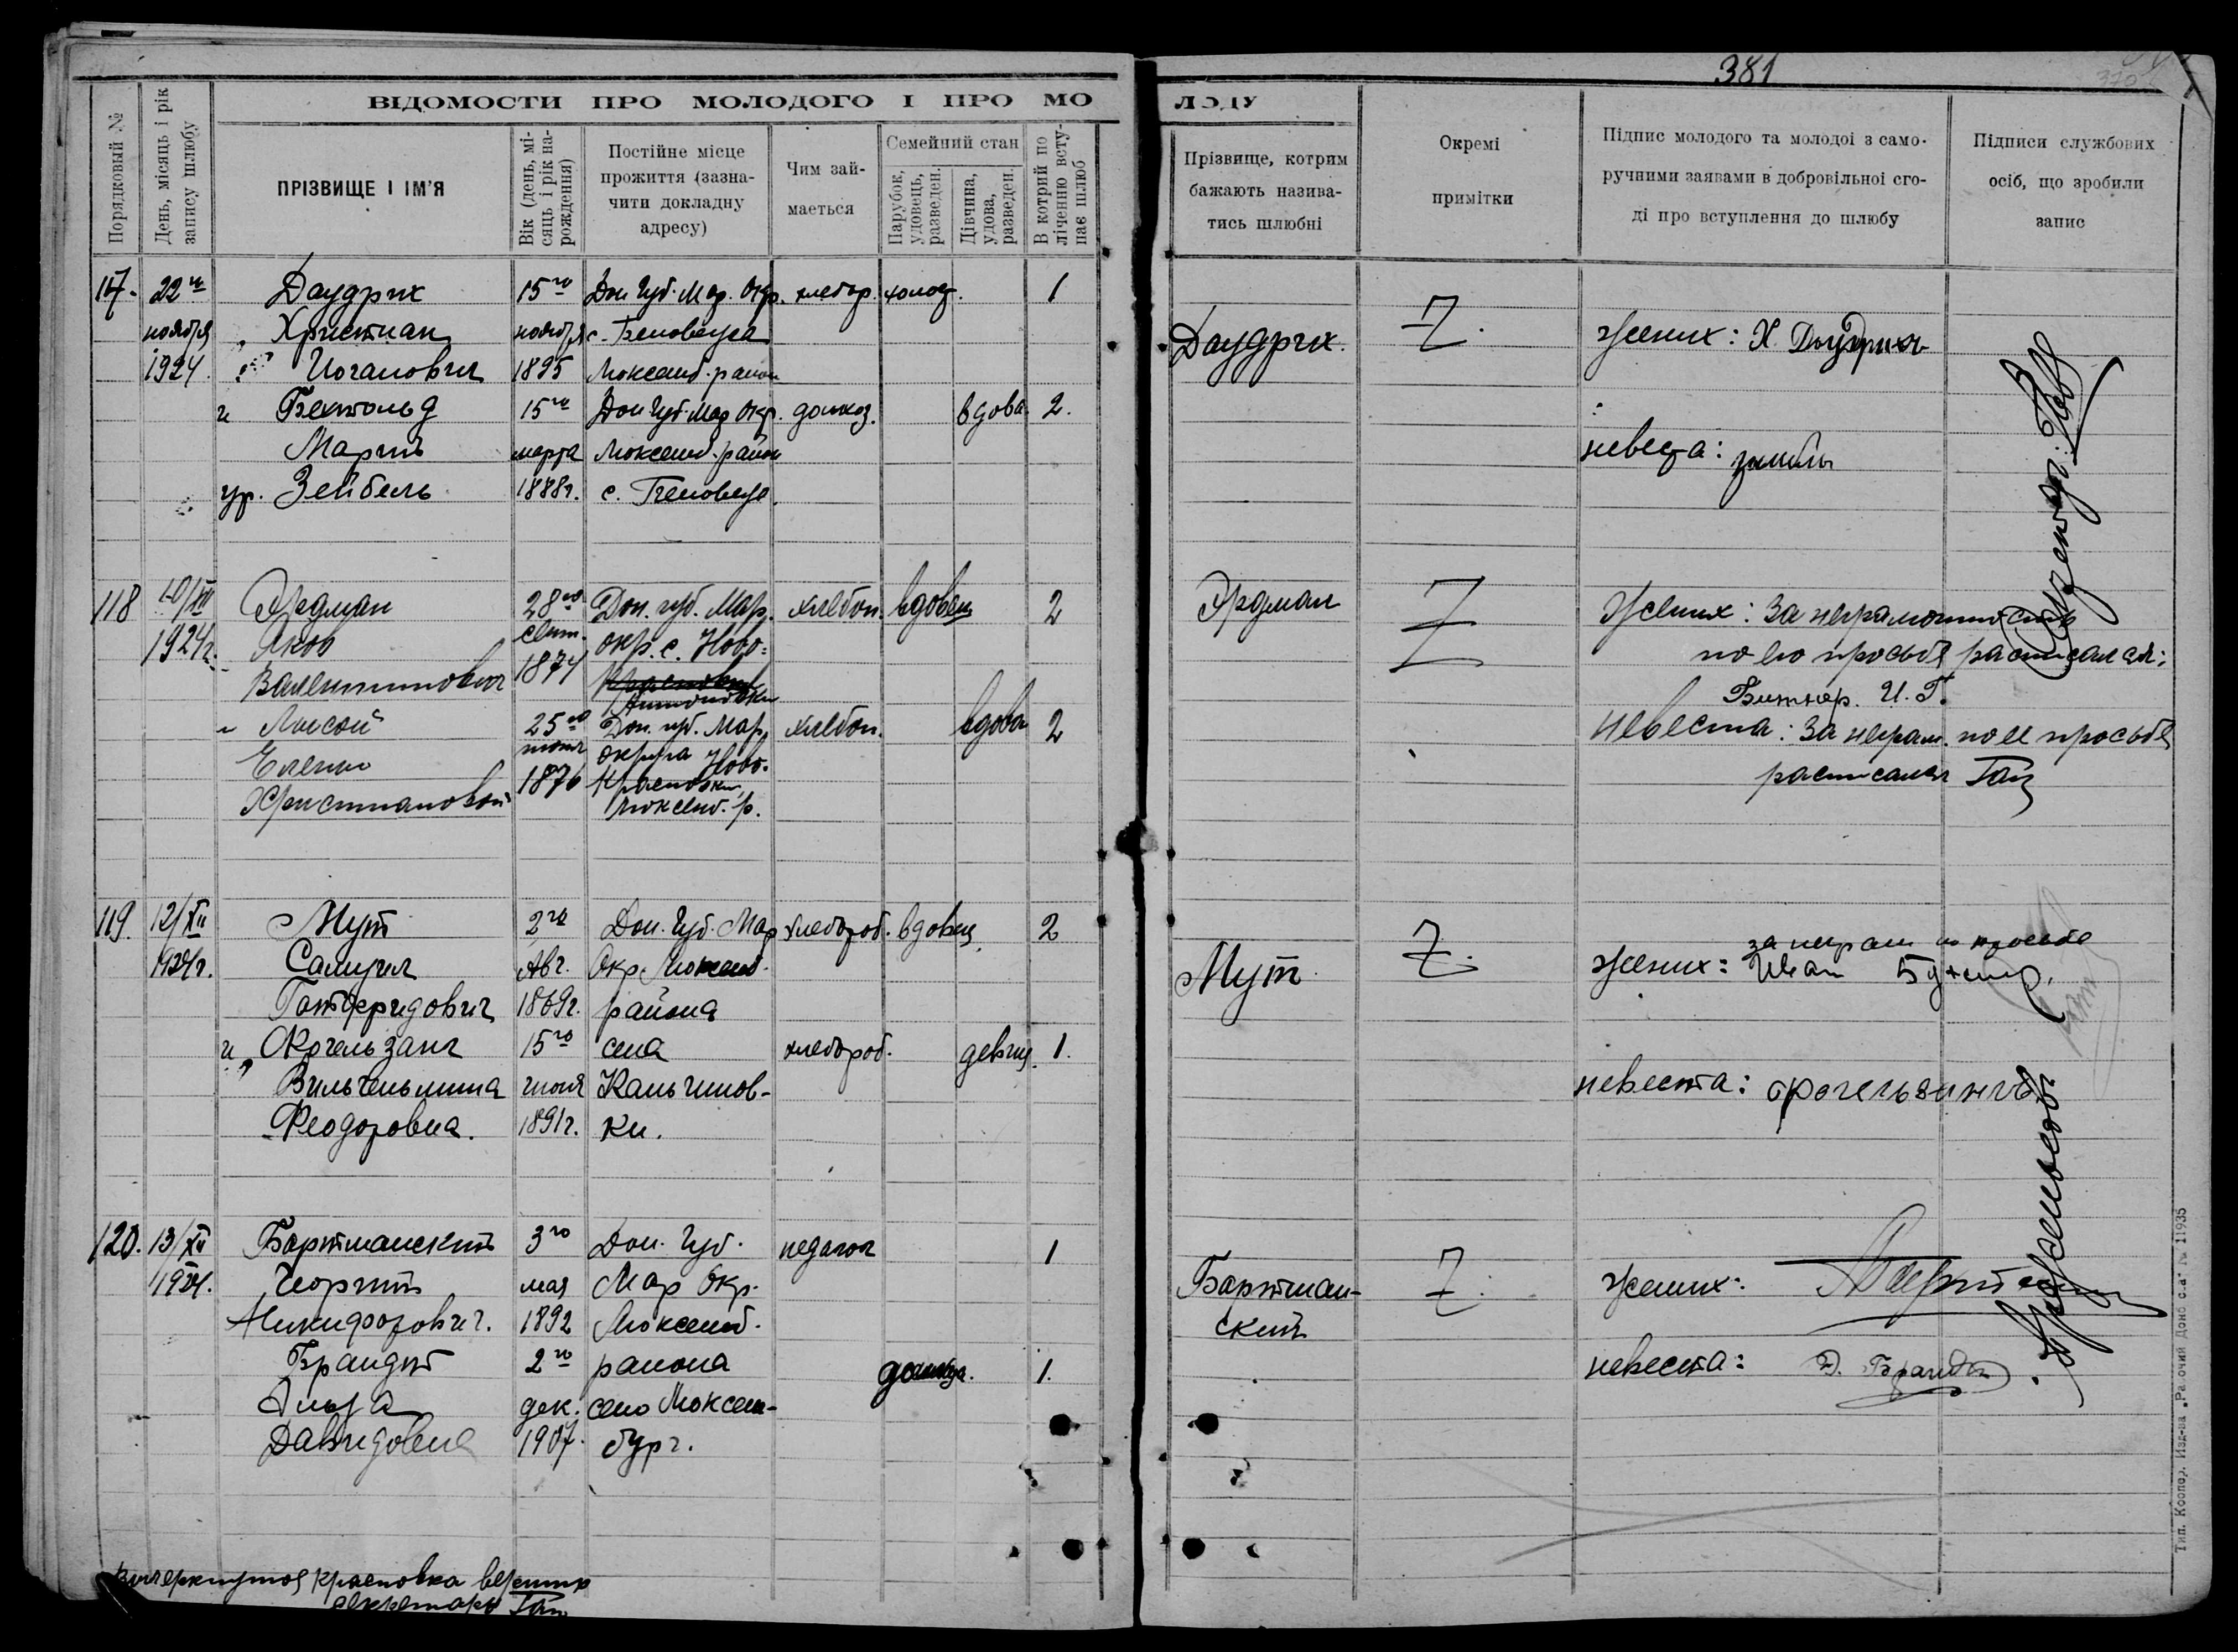 381
ВІДОМОСТИ ПРО МОЛОДОГО І ПРО МО
ЛОДУ
Порядковый №
День, місяць і рік запису шлюбу
ПРІЗВИЩЕ І ІМ'Я
Вік (день, мі-
сяць і рік на-
рождення)
Постійне місце
прожиття (зазна-
чити докладну
адресу)
Чим зай-
мається
Семейний стан
Парубок,
удовець,
разведен.
Дівчина,
удова,
разведен.
В котрий по
ліченню всту-
пає шлюб
Прізвище, котрим
бажають назива-
тись шлюбні
Окремі
примітки
Підпис молодого та молодоі з само-
ручними заявами в добровільноі сго-
ді про вступлення до шлюбу
Підписи службових
осіб, що зробили
запис
117. 22го Даудрих 15го Дон. Губ. Мар. Окр. хлебор. холост. 1
ноября Христиан ноября с.
1924. Иоганович 1895 Люксемб. район
Даудрих.
жених: Х. Даудрихъ
и Бехтольд 15го Дон. Губ. Мар. Окр. домхоз. вдова 2.
Мария марта Люксемб. район
ур. Зейбель 1888г. с.
невеста:
118 10/XII Эрдман 28го Дон. губ. Мар. хлебоп. вдовец 2
1924г. Яков сент. окр. с. Ново-
Валентинович 1874
Эрдман
Жених: За неграмотностью
по его просьбе расписался:
Битнер. И. Г.
25го Дон. губ. Мар. хлебоп. вдова 2
Елена округа Ново-
Христиановой 1876 Красновки
Люксемб. р.
Невеста: За неграм. по ее просьбе
расписался Гац
119. 12/XII Мут 2го Дон. Губ. Мар. хлебороб. вдовец 2
1924г. Самуил Авг. Окр. Люксемб.
Готфридович 1869г. района
Мут
жених: за неграм. по просьбе
Иван
и Фогельзанг 15го села хлебороб. девиц. 1.
Вильгельмина июня Кальчинов-
Феодоровна. 1891г. ки.
невеста: Фогельзангъ
120. 13/XII Бортманский 3го Дон. Губ. педагог 1
1924. Георгий мая Мар Окр.
Никифорович. 1892 Люксемб.
Бортман-
ский
жених:
Брандт 2го района домхоз. 1.
дек. село Люксем-
Давидовна 1907. бург.
невеста: Э. Брандтъ
Вычеркнутое Красновка верить
секретарь Гац
Тип. Коопер. Изд-ва „Рабочий Донбасса" № 11935